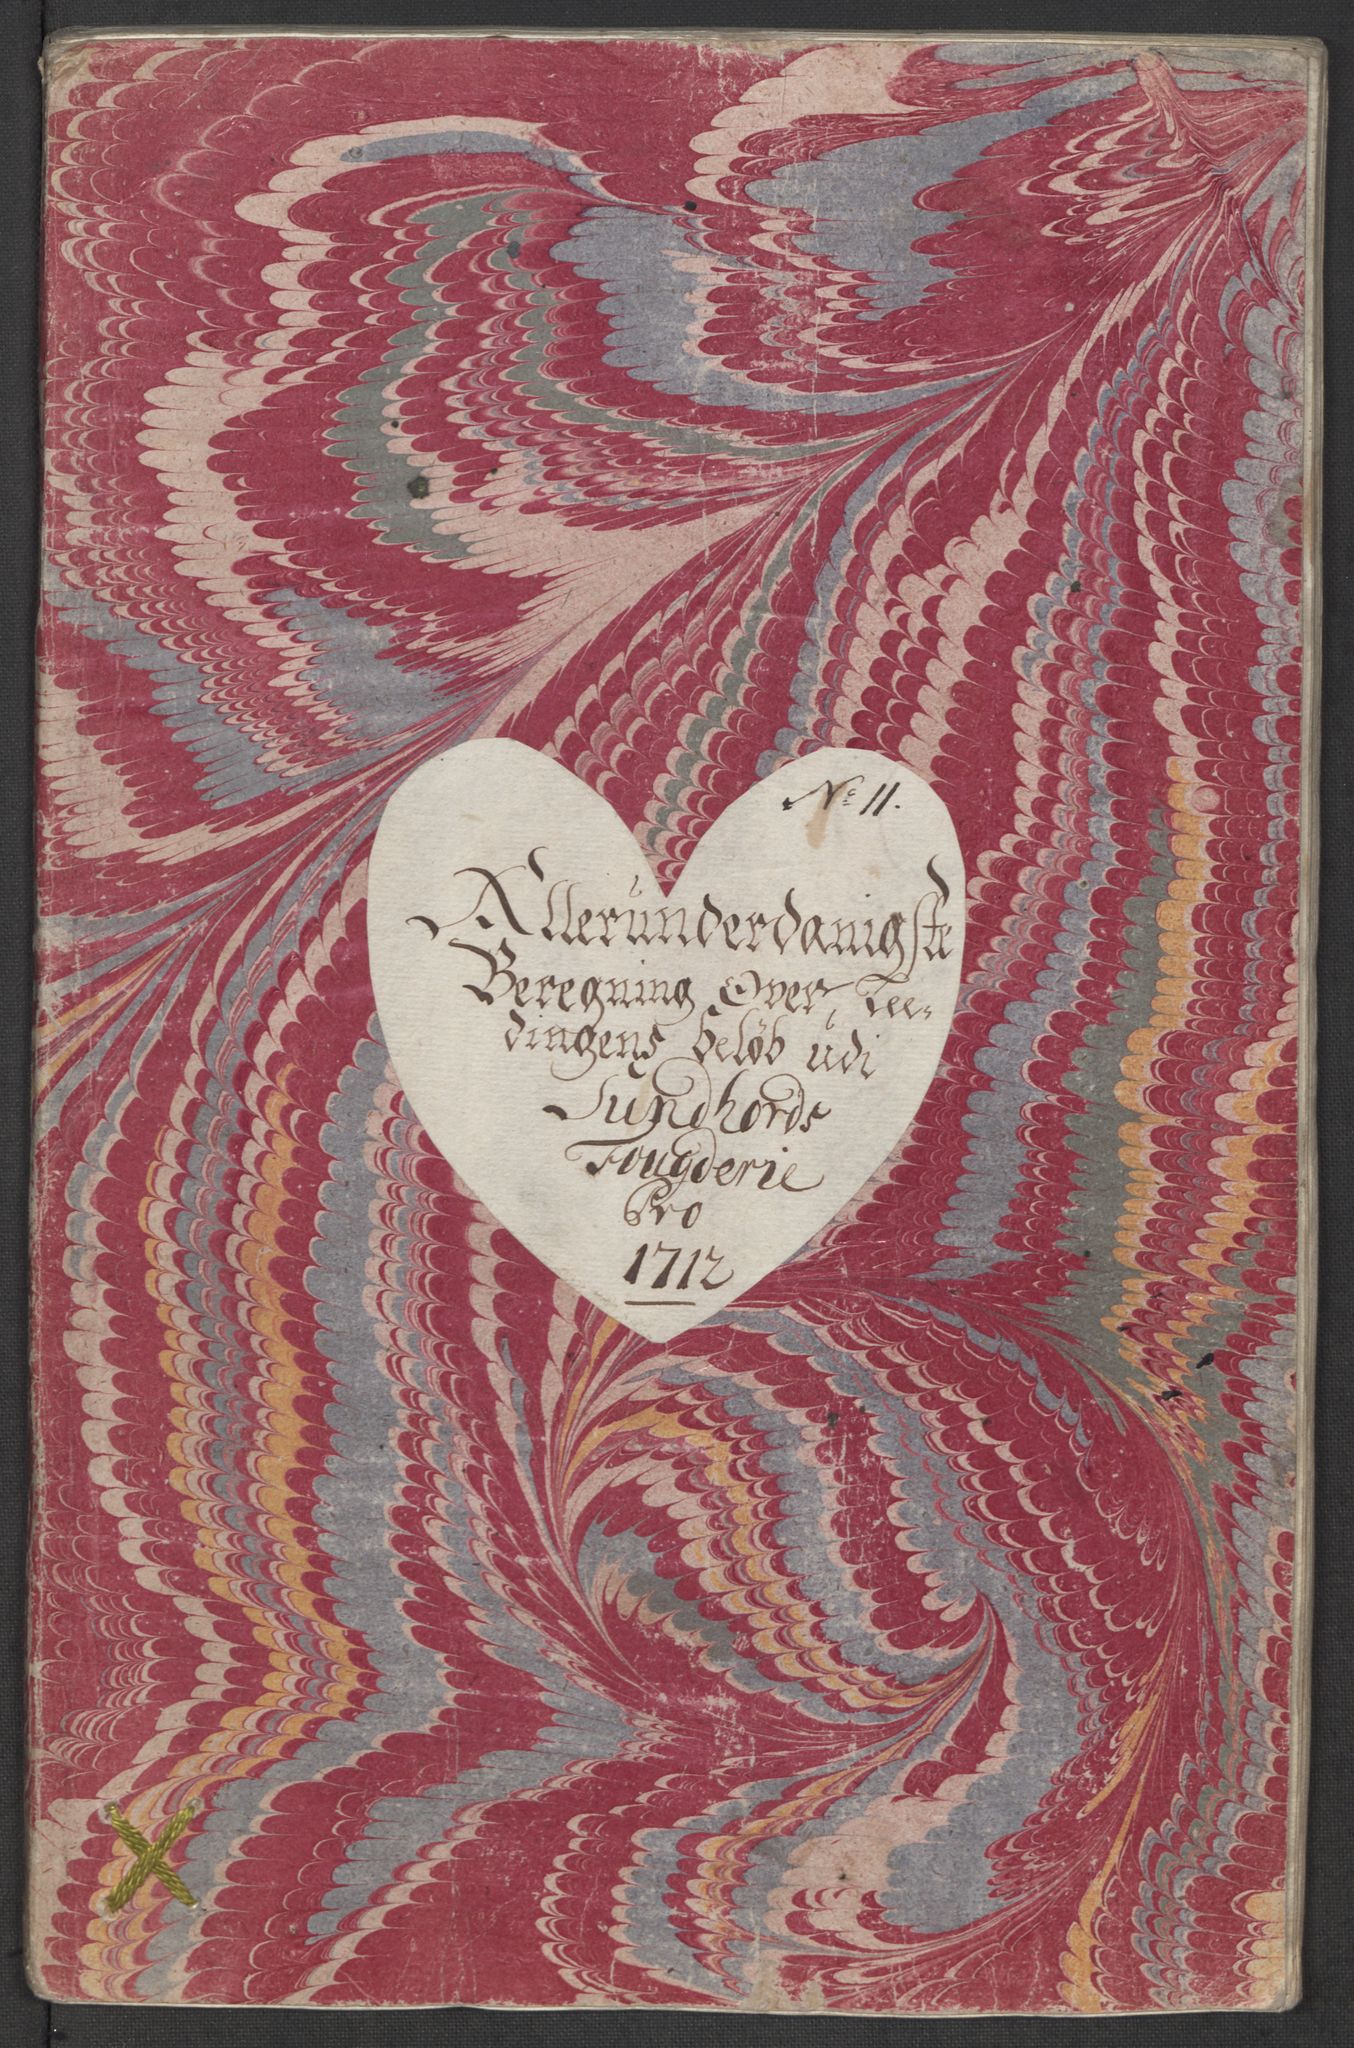 No 11.
Alleründerdanigste
Beregning Over, Tee-
dingens beløb üdi
Sündhords
Fougderie
Pro
1712